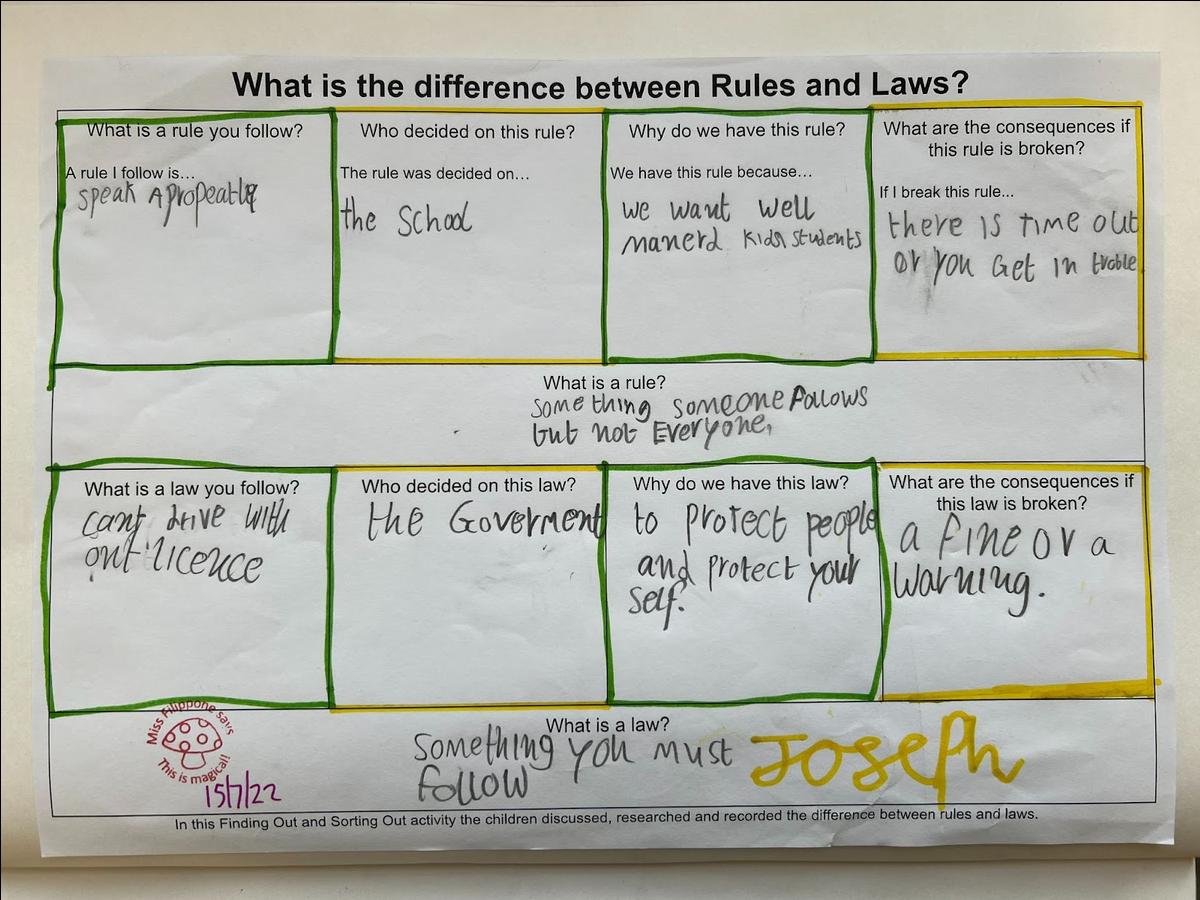 What is the difference between Rules and Laws?
What is a rule you follow?
A rule I follow is...
speak Apropeatly
Who decided on this rule?
The rule was decided on...
the School
Why do we have this rule?
We have this rule because...
we want well
manerd kids students
What are the consequences if
this rule is broken?
If I break this rule...
there is time out
or you Get in troble
What is a rule?
something someone Follows
but not Everyone,
What is a law you follow?
cant drive with
out licence
Who decided on this law?
the Goverment
Why do we have this law?
to protect people
and protect your
self.
What are the consequences if
this law is broken?
a fine or a
warning.
What is a law?
Something you must
follow
Joseph
Miss Filippone says
This is magical!
15/7/22
In this Finding Out and Sorting Out activity the children discussed, researched and recorded the difference between rules and laws.